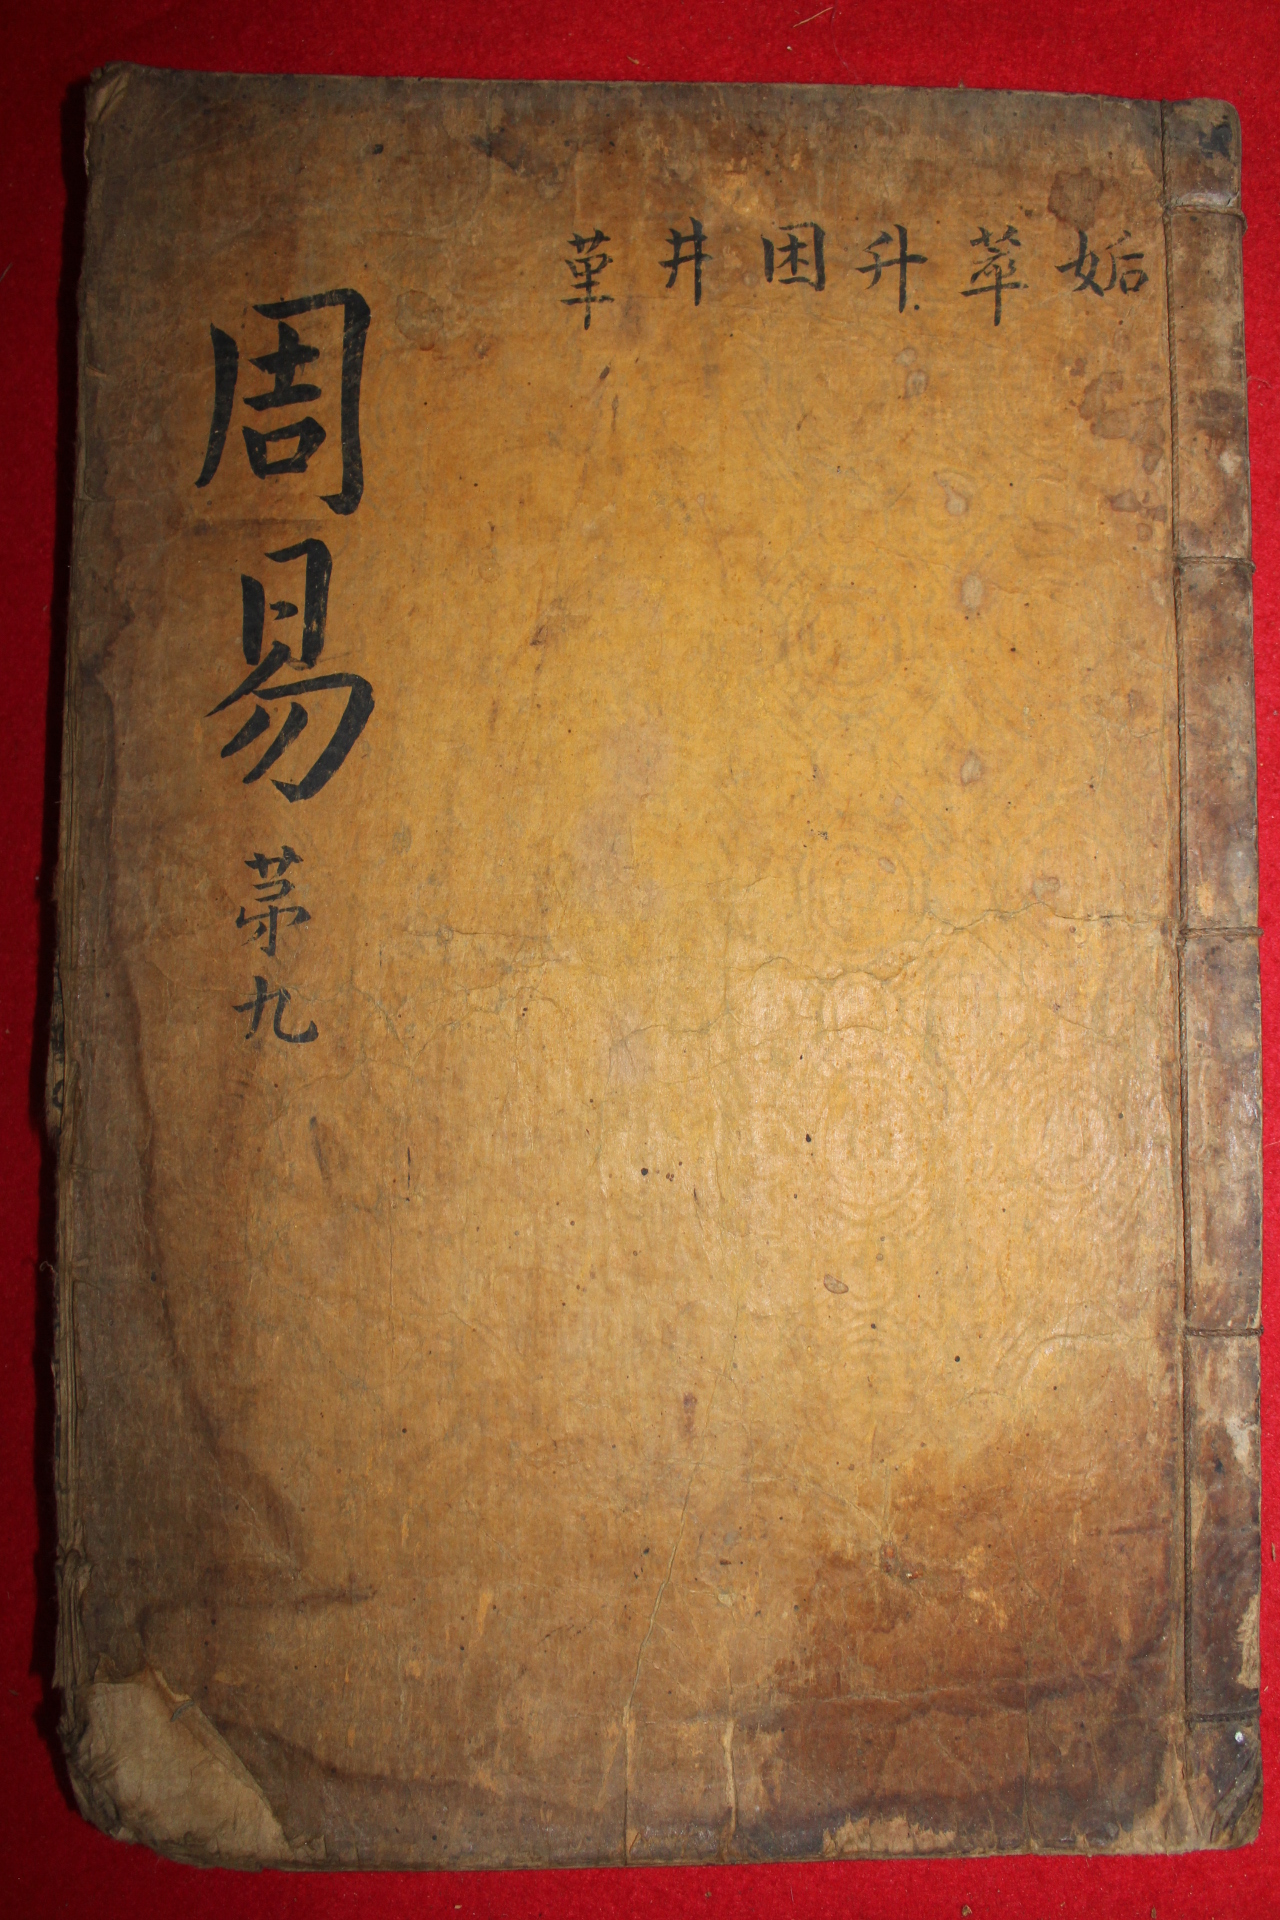 姤 萃 升 困 井 革
周易 苐九